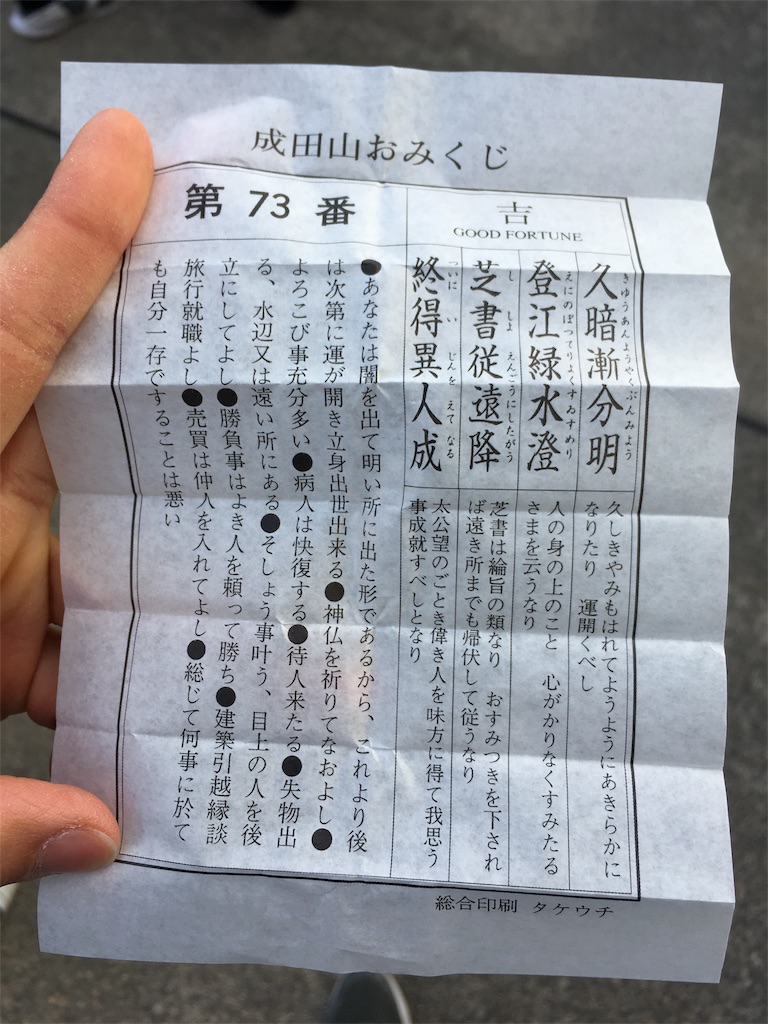 成田山おみくじ
吉
GOOD FORTUNE
きゆうあんようやくぶんみよう
久暗漸分明
久しきやみもはれてようようにあきらかに
なりたり　運開くべし
えにのぼつてりよくすゐすめり
登江緑水澄
人の身の上のこと　心がかりなくすみたる
さまを云うなり
し しよ えんごうにしたがう
芝書従遠降
芝書は綸旨の類なり　おすみつきを下され
ば遠き所までも帰伏して従うなり
ついに い じんを えて なる
終得異人成
太公望のごとき偉き人を味方に得て我思う
事成就すべしとなり
第 73 番
●あなたは闇を出て明い所に出た形であるから、これより後
は次第に運が開き立身出世出来る●神仏を祈りてなおよし●
よろこび事充分多い●病人は快復する●待人来たる●失物出
る、水辺又は遠い所にある●そしょう事叶う、目上の人を後
立にしてよし●勝負事はよき人を頼って勝ち●建築引越縁談
旅行就職よし●売買は仲人を入れてよし●総じて何事に於て
も自分一存ですることは悪い
総合印刷 タケウチ